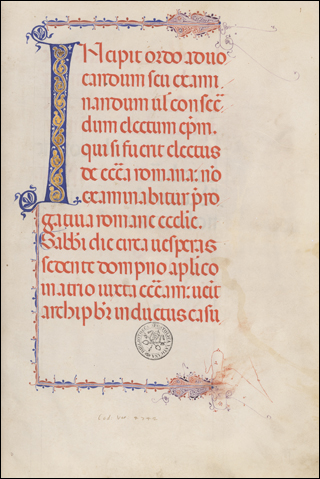 INcipit ordo ad uo
candum seu exami
nandum uł consec̄
dum electum ep̄m.
qui si fuerit electus
de ecc̄a romana: nō
examinabitur p̄ro
gatiua romane ecclie.
Sabbī die circa uesperas
sedente dompno aplico
in atrio iuxta ecc̄am: ueit
archip̄br inductus casu